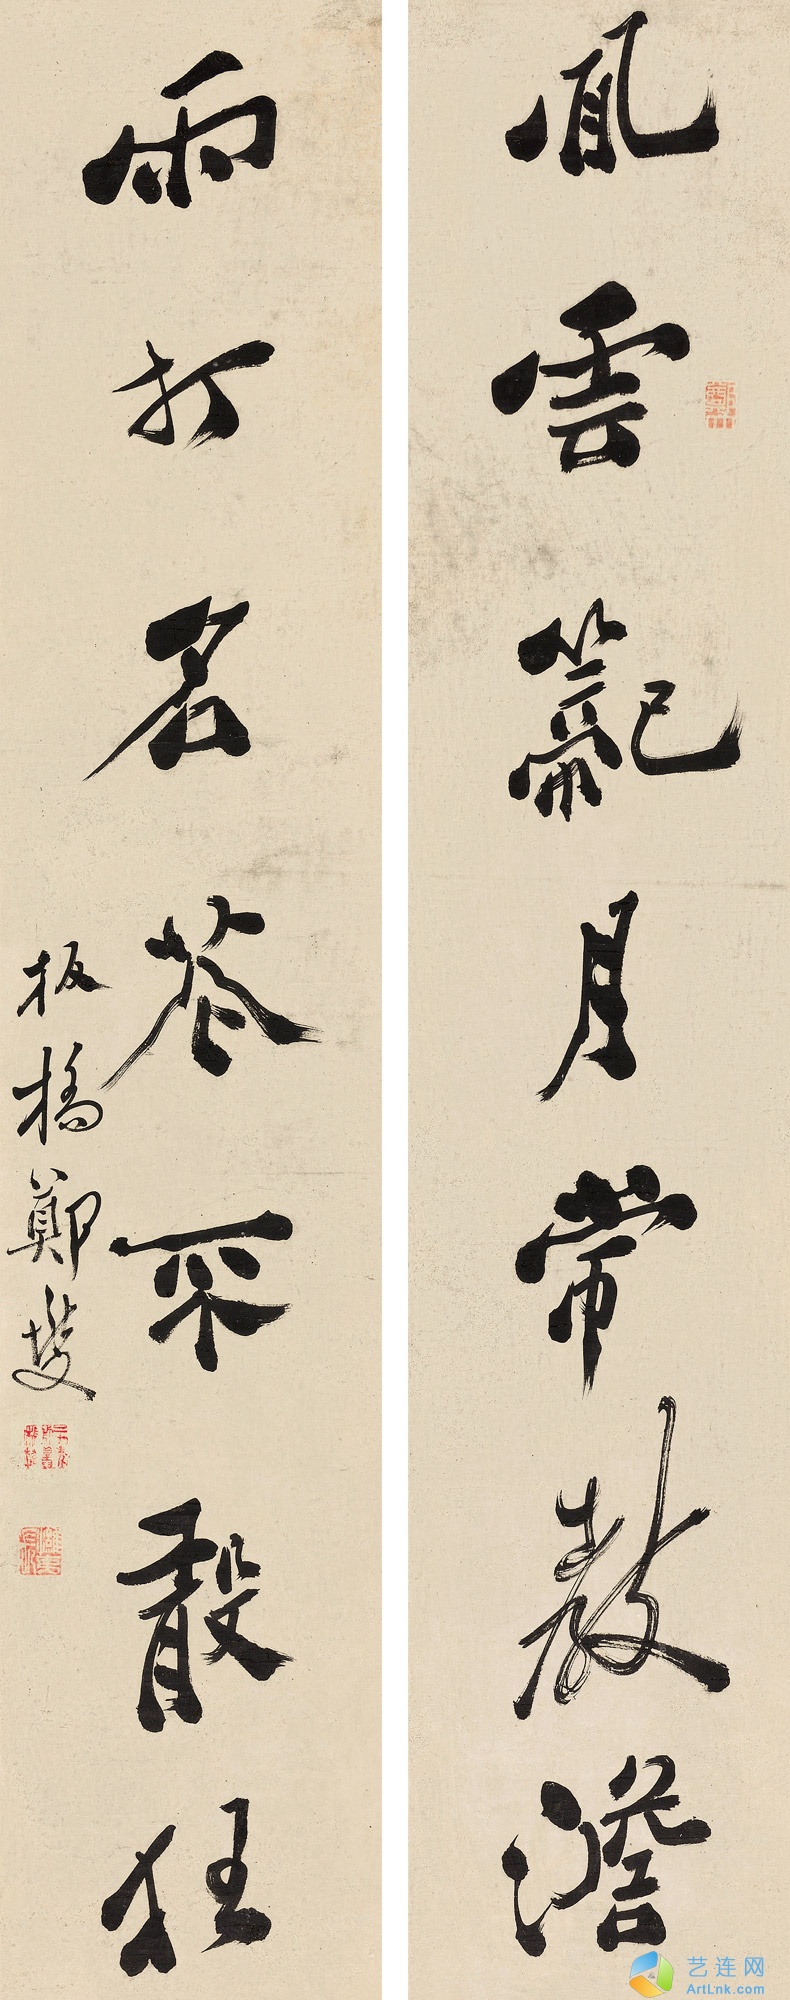 風雲籠月常教澹
雨打名花不敢狂
板橋鄭燮
艺连网
ArtLnk.com